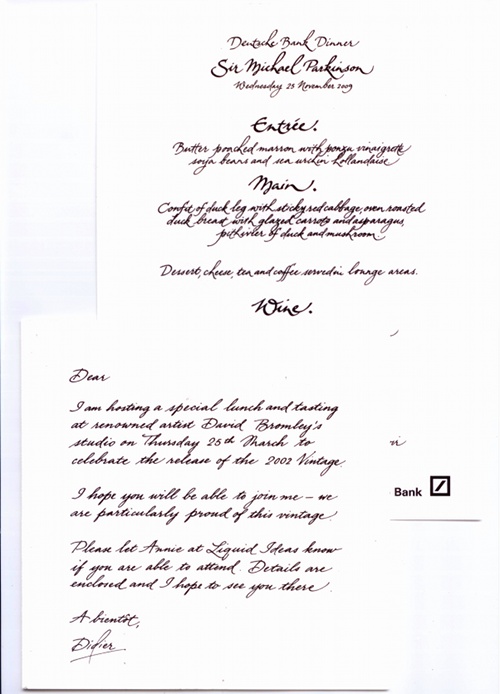 Deutsche Bank Dinner
Sir Michael Parkinson
Wednesday 25 November 2009
Entrée.
Butter poached marron with ponzu vinaigrette
soya beans and sea urchin hollandaise
Main.
Confit of duck leg with sticky red cabbage, oven roasted
duck breast with glazed carrots and asparagus,
pithivier of duck and mushroom.
Dessert, cheese, tea and coffee served in lounge areas.
Wine.
Bank
Dear
I am hosting a special lunch and tasting
at renowned artist David Bromley's
studio on Thursday 25th March to
celebrate the release of the 2002 Vintage.
I hope you will be able to join me – we
are particularly proud of this vintage.
Please let Annie at Liquid Ideas know
if you are able to attend. Details are
enclosed and I hope to see you there.
A bientôt,
Didier